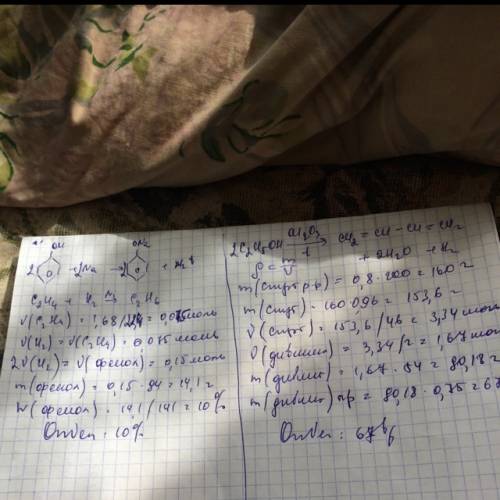 OH ONa
2 + 2Na → 2 + H₂↑
C₂H₄ + H₂ → C₂H₆
ν(C₂H₄) = 1,68/22,4 = 0,075 моль
ν(H₂) = ν(C₂H₄) = 0,075 моль
2ν(H₂) = ν(фенол) = 0,15 моль
m(фенол) = 0,15 · 94 = 14,1 г
w(фенол) = 14,1 / 141 = 10%
Ответ: 10%
2C₂H₅OH → CH₂ = CH - CH = CH₂
+ 2H₂O + H₂
ρ = m/V
m(спирт р-р) = 0,8 · 200 = 160 г
m(спирт) = 160 · 0,96 = 153,6 г
ν(спирт) = 153,6 / 46 = 3,34 моль
ν(дивинил) = 3,34/2 = 1,67 моль
m(дивинил) = 1,67 · 54 = 80,18 г
m(дивинил) пр = 80,18 · 0,75 = 6
Ответ: